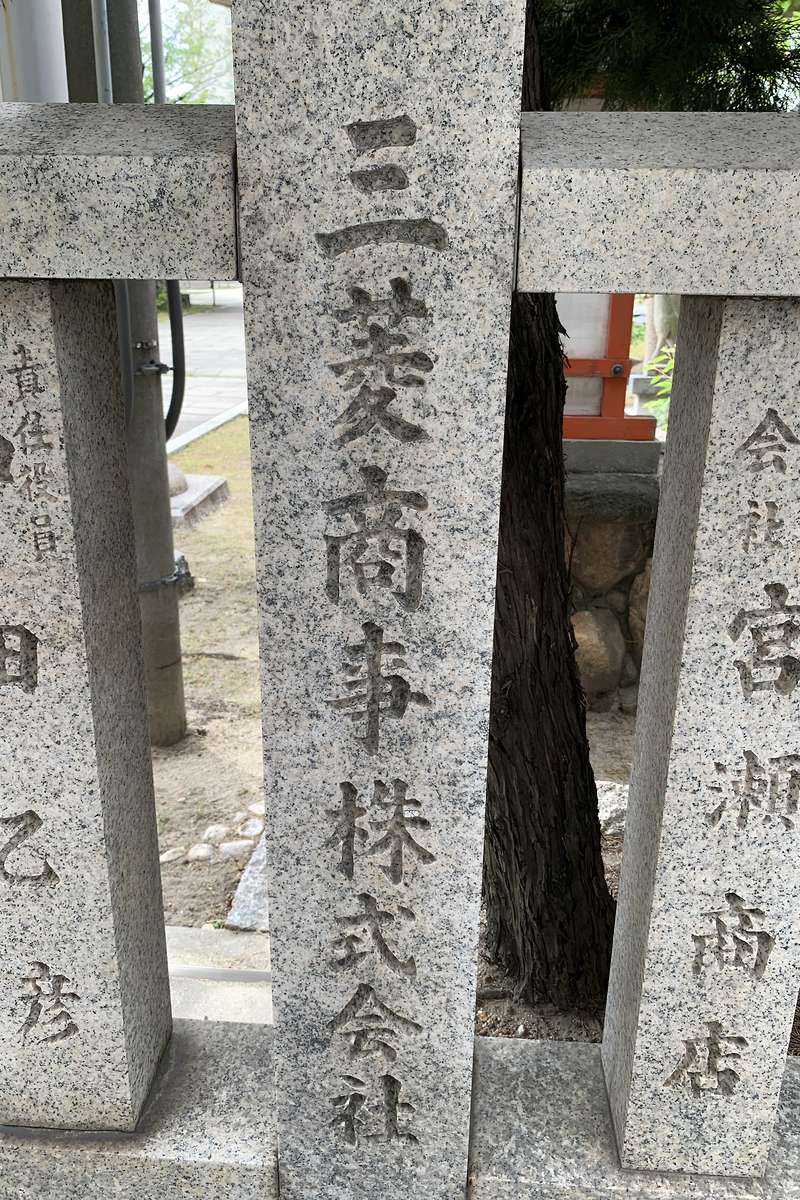 三菱商事株式会社
会社
宮瀬商店
責任役員
田乙彦